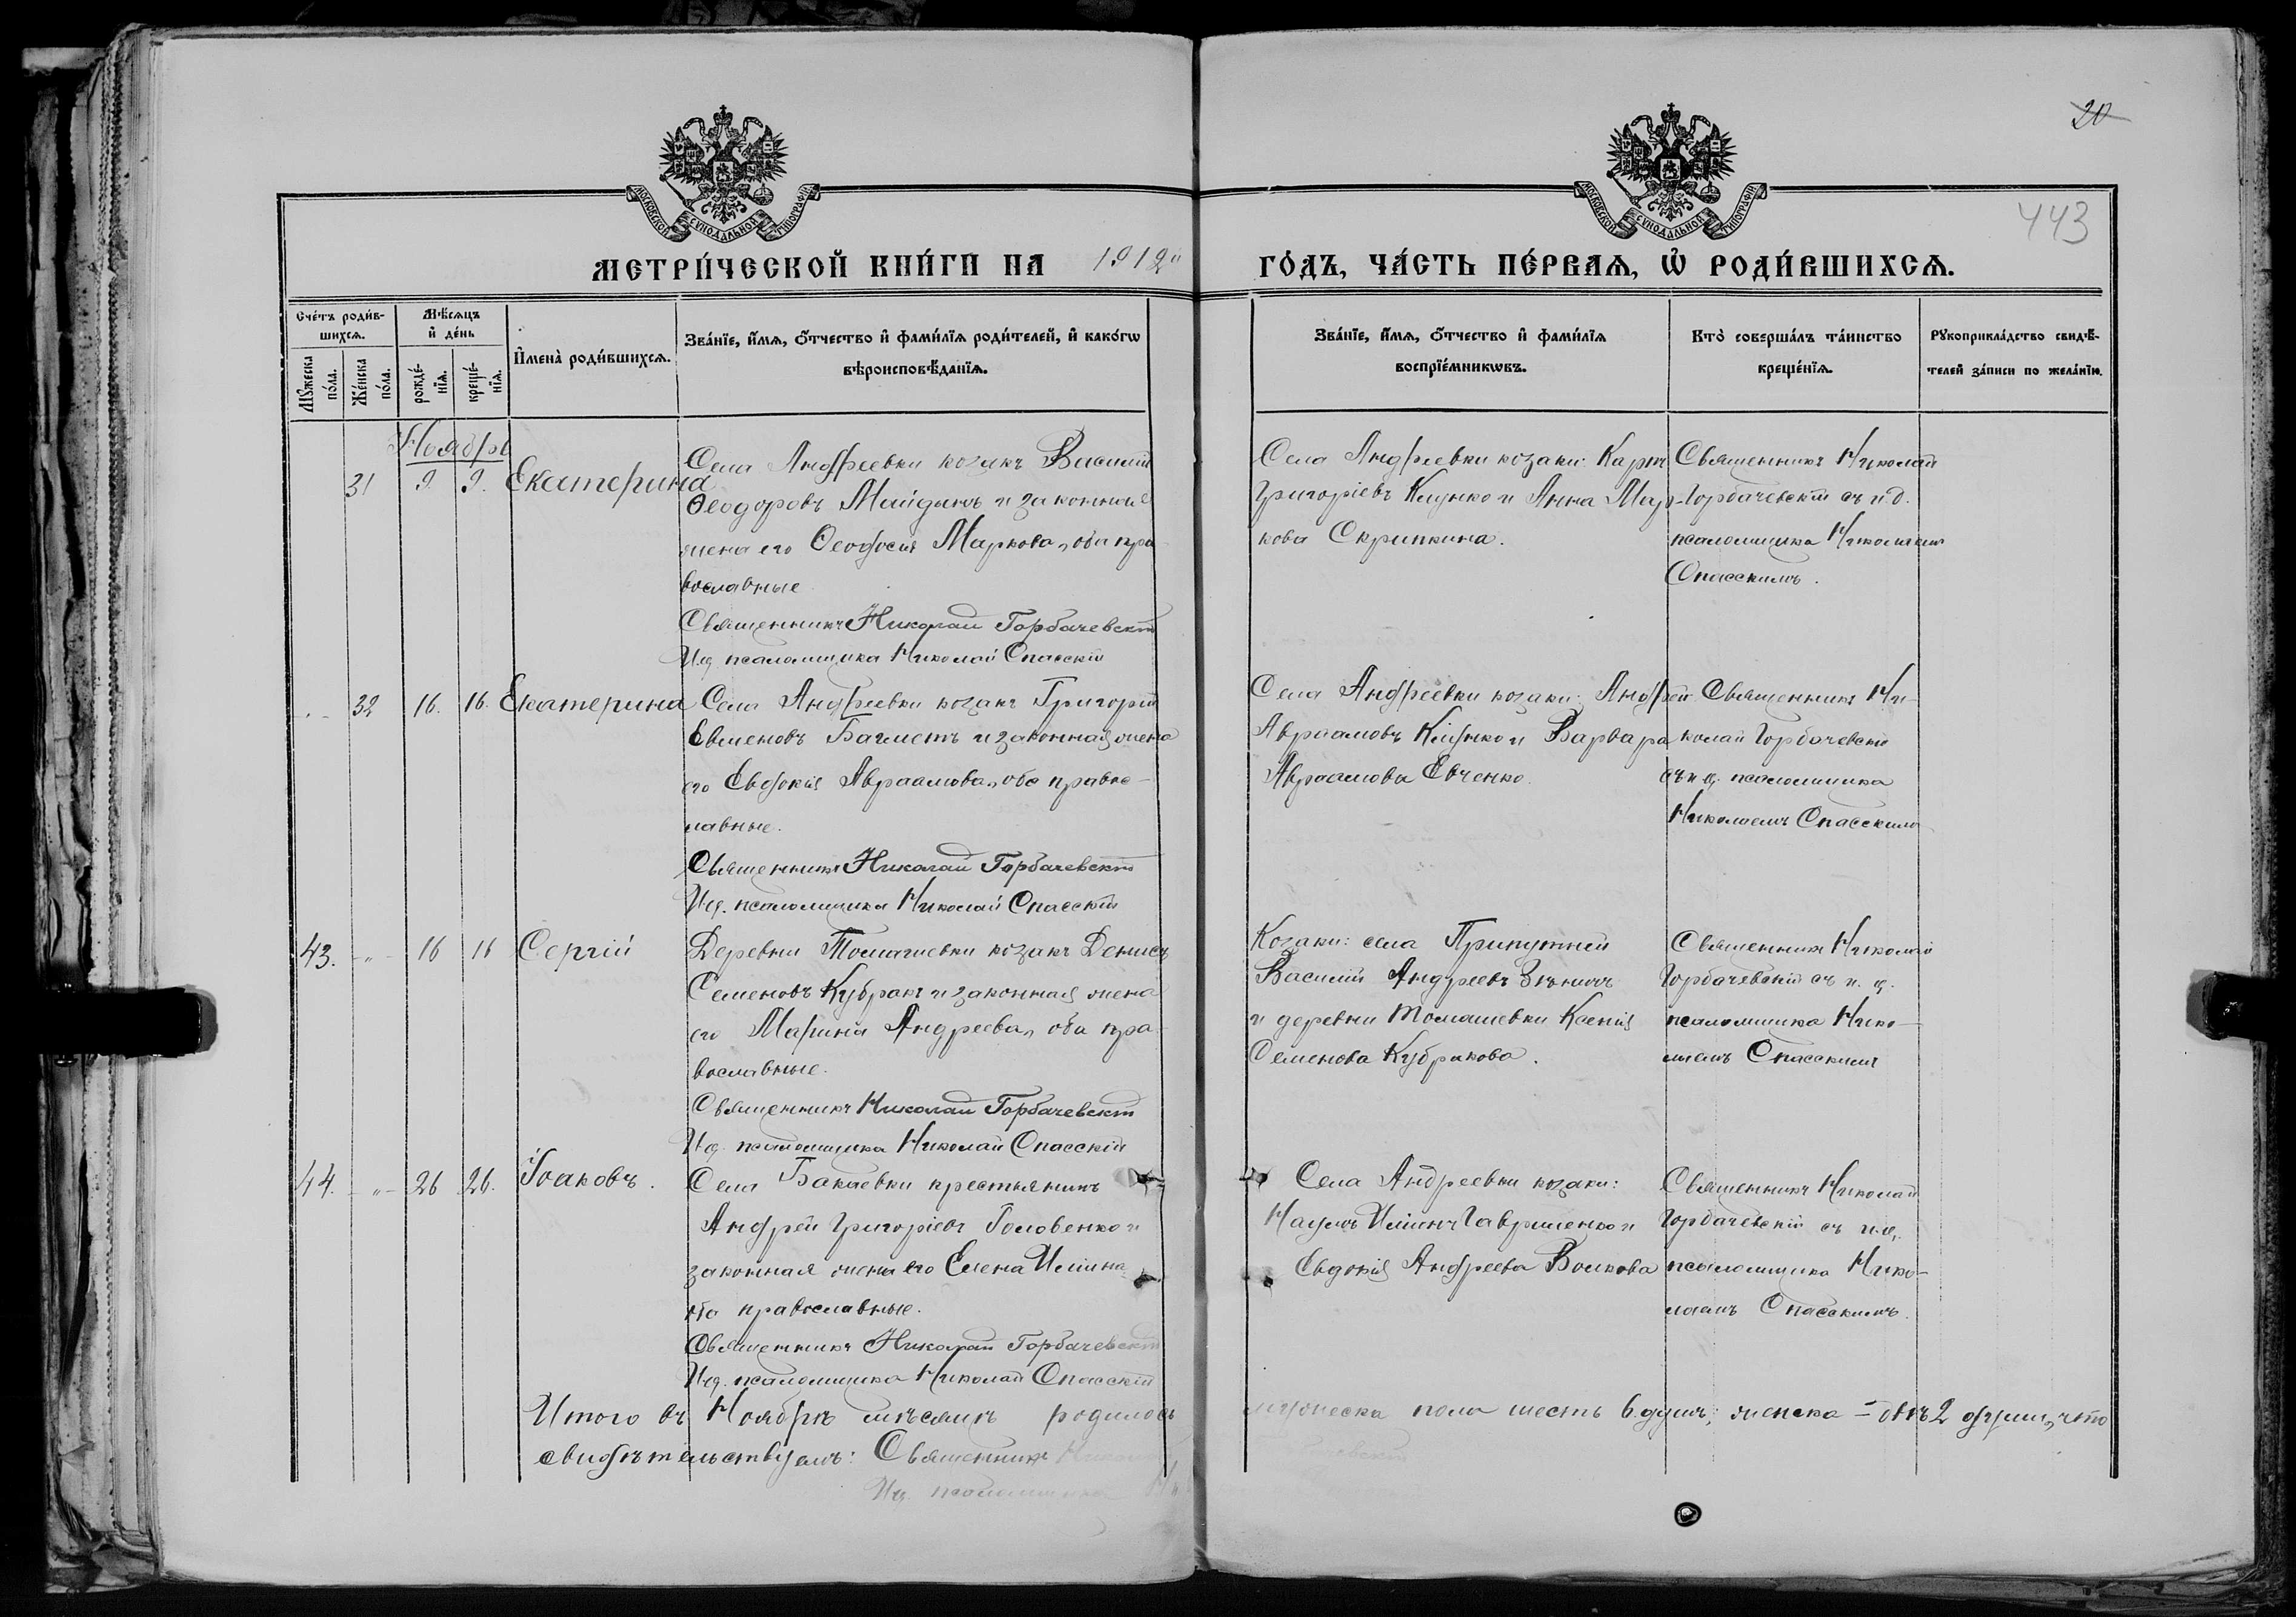 20
443
МОСКОВСКОЙ СѴНОДАЛЬНОЙ ТИПОГРАФІИ
МОСКОВСКОЙ СѴНОДАЛЬНОЙ ТИПОГРАФІИ
МЕТРИ́ЧЕСКОЙ КНИ́ГИ НА 1912
ГО́ДЪ, ЧА́СТЬ ПЕ́РВАѦ, Ѽ РОДИ́ВШИХСѦ.
Сче́тъ роди́в-
шихсѧ.
Мꙋ́жеска
по́ла.
Же́нска
по́ла.
Мѣ́сѧцъ
и҆ де́нь
рожде́-
нїѧ.
креще́-
нїѧ.
И҆мена̀ роди́вшихсѧ.
Зва́нїе, и҆́мѧ, ѻ҆́тчество и҆ фами́лїѧ роди́телей, и҆ како́гѡ
вѣроисповѣ́данїѧ.
Зва́нїе, и҆́мѧ, ѻ҆́тчество и҆ фами́лїѧ
воспрїе́мникѡвъ.
Кто̀ соверша́лъ та́инство
креще́нїѧ.
Рꙋкоприкла́дство свидѣ́-
телей за́писи по жела́нїю.
Ноябрь
31 9. 9. Екатерина
Села Андреевки козакъ Василій
Ѳеодоровъ Майданъ и законная
жена его Ѳеодосія Маркова, оба пра
вославные
Священникъ Николай Горбачевскій
И.д. псаломщика Николай Спасскій
Села Андреевки козаки: Карпъ
Григоріевъ Клунко и Анна Мар-
кова Скрипкина.
Священникъ Николай
Горбачевскій съ и.д.
псаломщика Николаемъ
Спасскимъ.
32 16. 16. Екатерина
Села Андреевки козакъ Григорій
Евменовъ Багметъ и законная жена
его Евдокія Авраамова, оба право-
лавные.
Священникъ Николай Горбачевскій
И.д. псаломщика Николай Спасскій
Села Андреевки козаки: Андрей
Авраамовъ Клунко и Варвара
Авраамова Евченко.
Священникъ Ни-
колай Горбачевскій
съ и.д. псаломщика
Николаемъ Спасскимъ
43. -"- 16 16 Сергій
Деревни Томашевки козакъ Денисъ
Семеновъ Кубракъ и законная жена
его Марина Андреева, оба пра
вославные.
Священникъ Николай Горбачевскій
И.д. псаломщика Николай Спасскій
Козаки: села Припутней
Василій Андреевъ
и деревни Томашевки Ксенія
Семенова Кубракова.
Священникъ Николай
Горбачевскій съ и.д.
псаломщика Нико-
лаемъ Спасскимъ
44. -"- 26 26. Іоаковъ.
Села Бакаевки крестьянинъ
Андрей Григоріевъ Головенко и
законная жена его Елена Иліина
оба православные.
Священникъ Николай Горбачевскій
И.д. псаломщика Николай Спасскій
Села Андреевки козаки:
Наумъ Иліинъ Гавриленко и
Евдокія Андреева Волкова
Священникъ Николай
Горбачевскій съ и.д.
псаломщика Нико-
лаемъ Спасскимъ.
Итого въ Ноябрѣ мѣсяцѣ родилось мужеска пола шесть 6 душъ; женска – двѣ 2 души, что
свидѣтельствуемъ: Священникъ
И.д. псаломщика